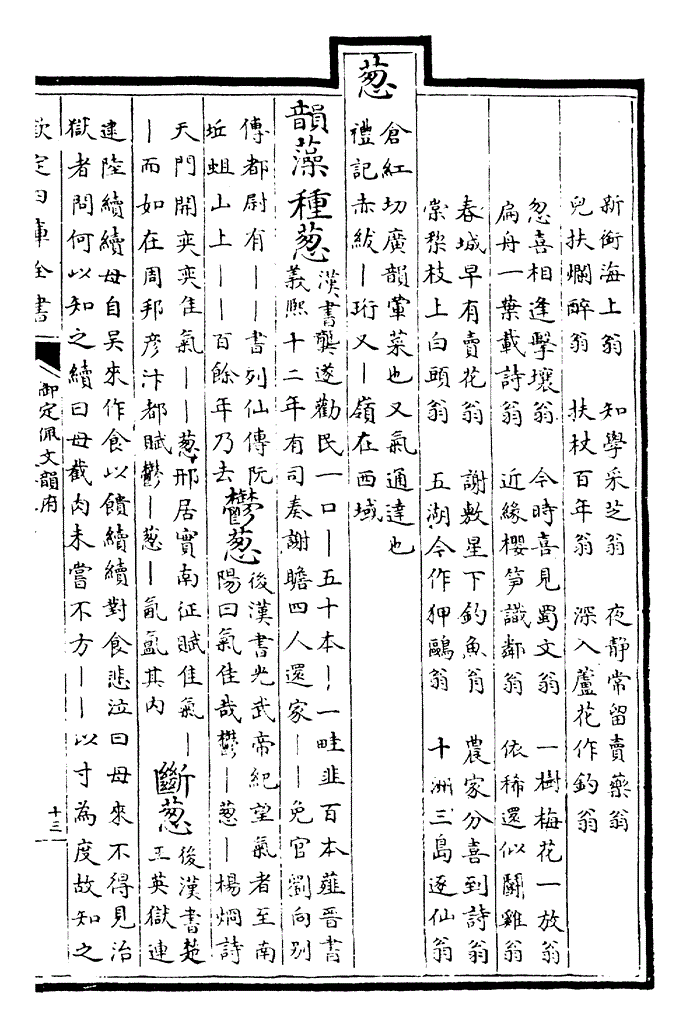 新銜海上翁　知學采芝翁　夜静常留賣藥翁
兒扶爛醉翁　扶杖百年翁　深入蘆花作釣翁
忽喜相逢擊壤翁　今時喜見蜀文翁　一樹梅花一放翁
扁舟一葉載詩翁　近緣櫻笋識鄰翁　依稀還似鬬雞翁
春城早有賣花翁　謝敷星下釣魚翁　農家分喜到詩翁
棠棃枝上白頭翁　五湖今作狎鷗翁　十洲三島逐仙翁
葱
倉紅切廣韻葷菜也又氣通達也
禮記赤紱丨珩又丨嶺在西域
韻藻種葱
漢書龔遂勸民一口丨五十本丨一畦韭百本薤晉書
義熙十二年有司奏謝瞻四人還家丨丨免官劉向别
傳都尉有丨丨書列仙傳阮
坵蛆山上丨丨百餘年乃去
鬱葱
後漢書光武帝紀望氣者至南
陽曰氣佳哉鬱丨葱丨楊烱詩
天門開奕奕佳氣丨丨葱邢居實南征賦佳氣丨
丨而如在周邦彦汴都賦鬱丨葱丨氤氲其内
斷葱
後漢書楚
王英獄連
逮陸續續母自吳來作食以饋續續對食悲泣曰母來不得見治
獄者問何以知之續曰母截肉未嘗不方丨丨以寸為度故知之
欽定四庫全書
御定佩文韻府
十三